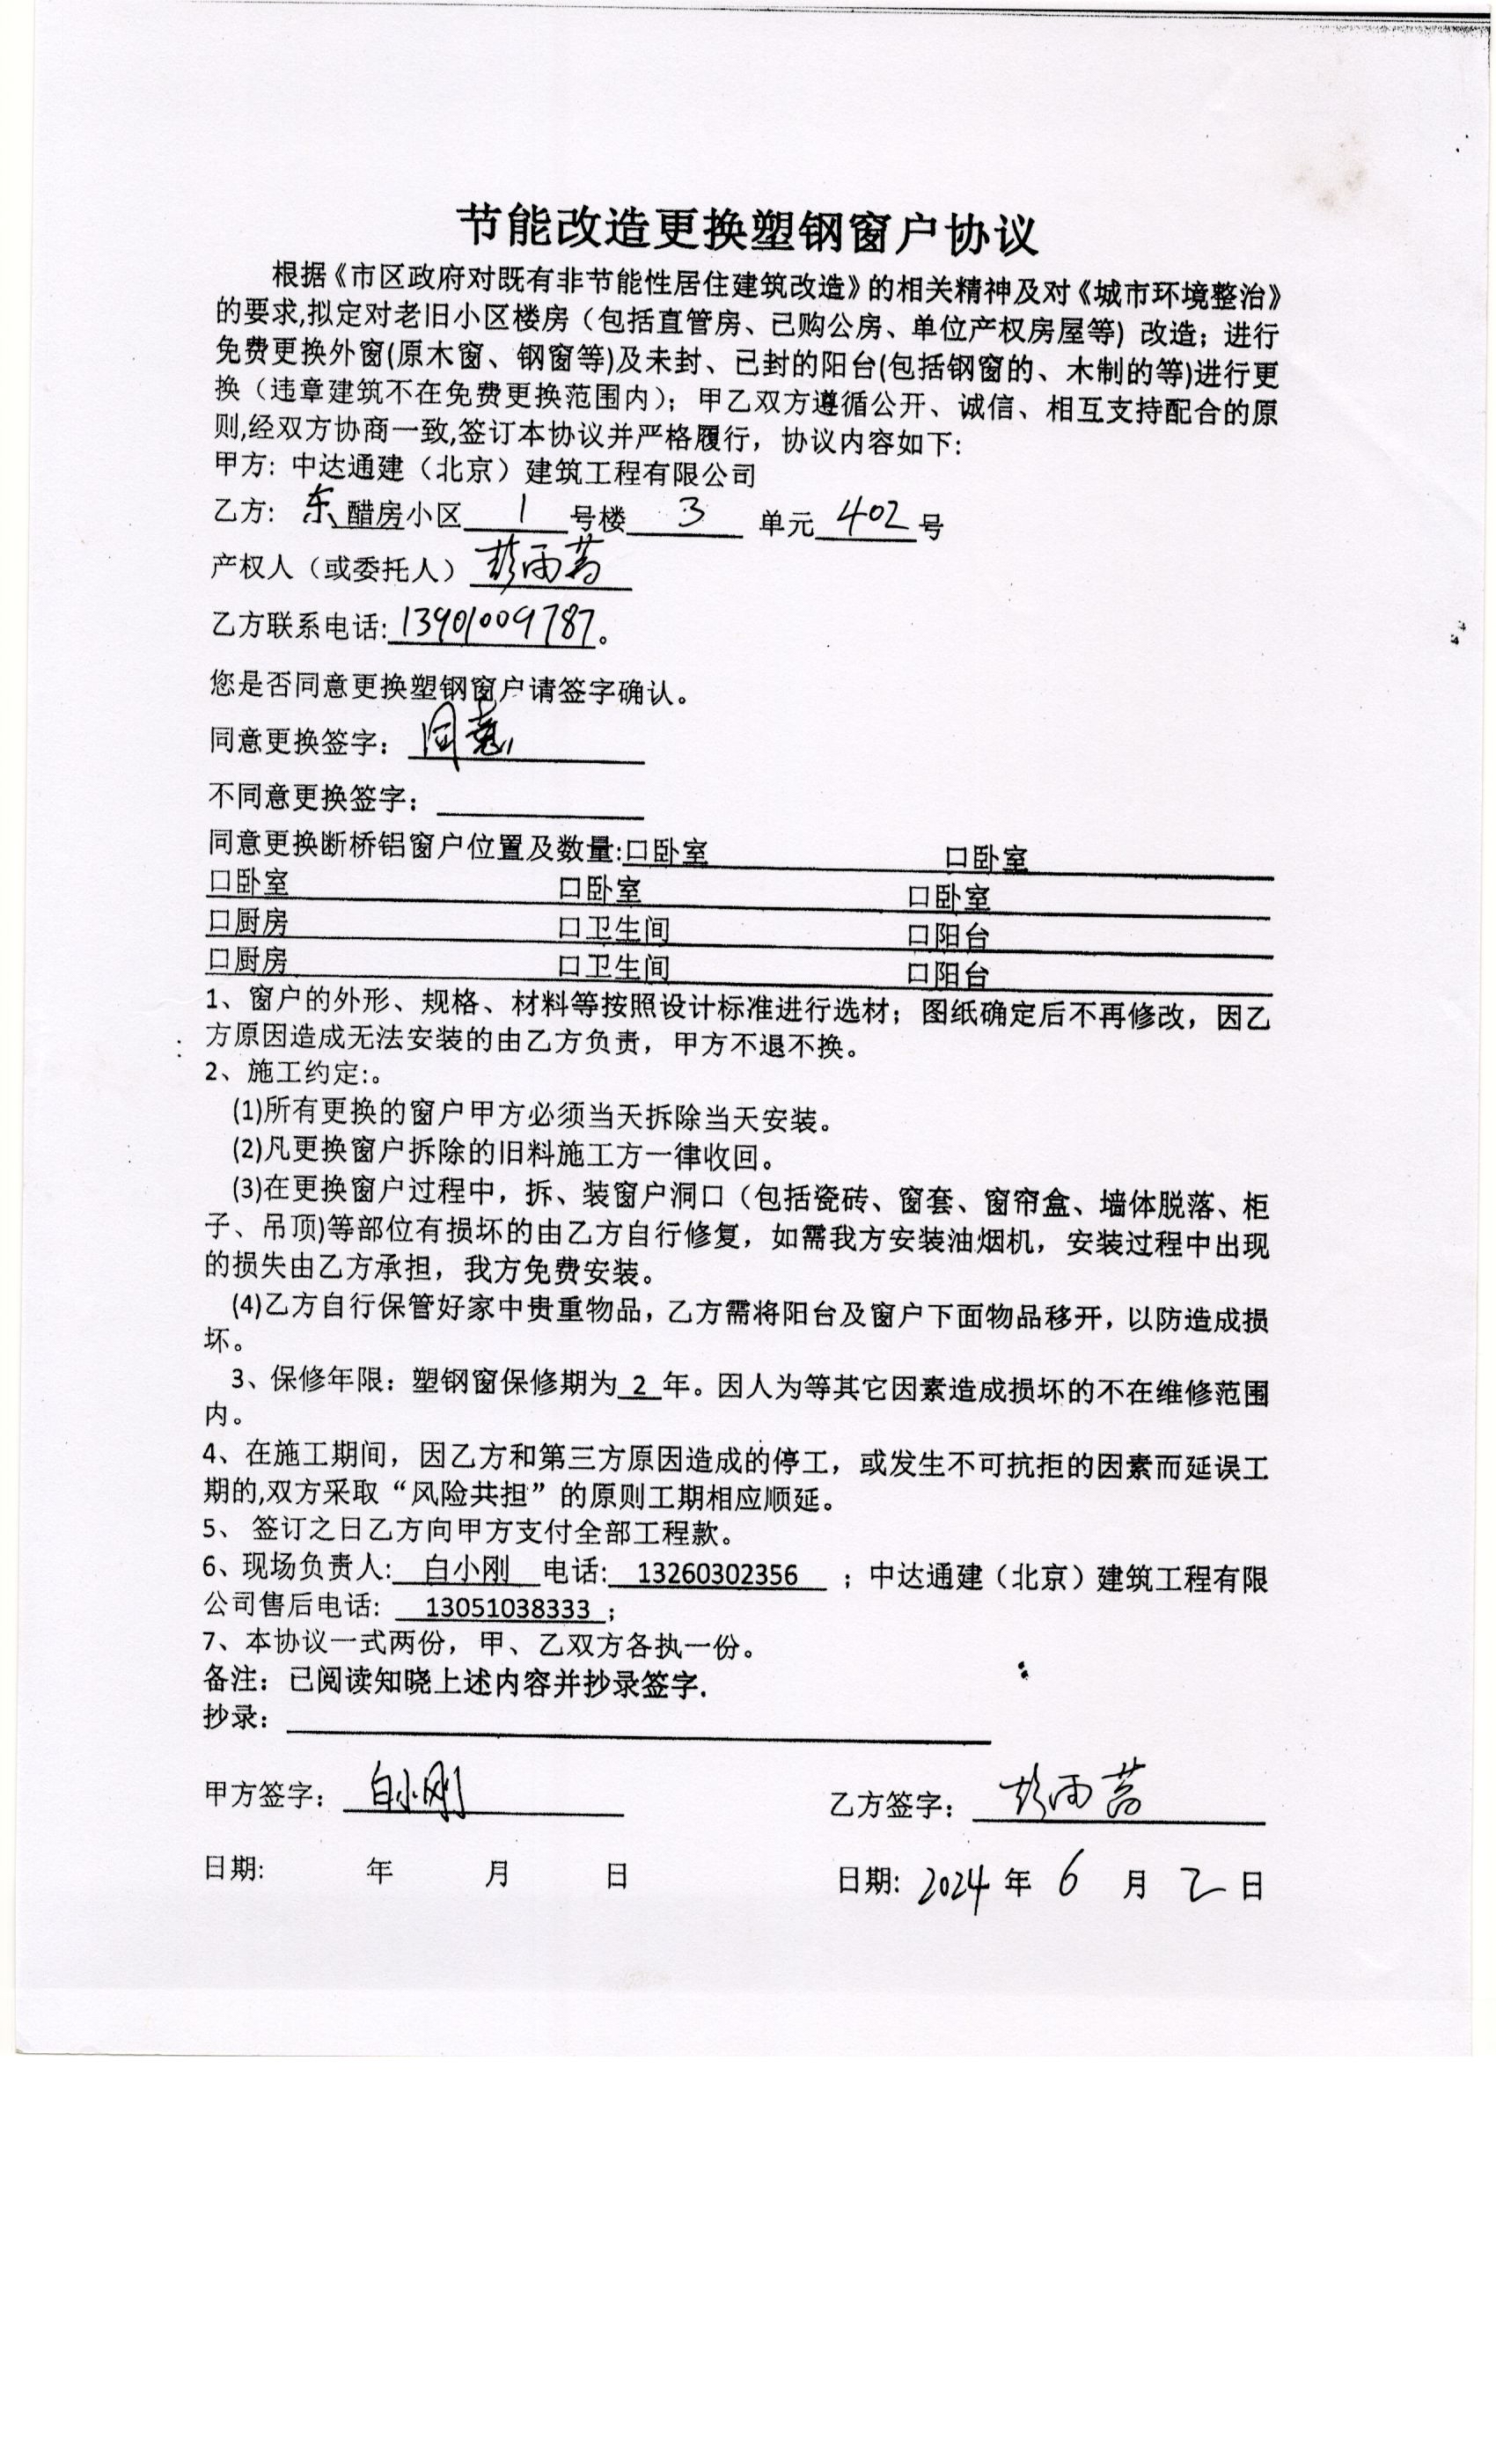 节能改造更换塑钢窗户协议
根据《市区政府对既有非节能性居住建筑改造》的相关精神及对《城市环境整治》
的要求,拟定对老旧小区楼房（包括直管房、已购公房、单位产权房屋等) 改造；进行
免费更换外窗(原木窗、钢窗等)及未封、已封的阳台(包括钢窗的、木制的等)进行更
换（违章建筑不在免费更换范围内）；甲乙双方遵循公开、诚信、相互支持配合的原
则,经双方协商一致,签订本协议并严格履行，协议内容如下:
甲方: 中达通建（北京）建筑工程有限公司
乙方: 东醋房小区 1 号楼 3 单元 402 号
产权人（或委托人）雨
乙方联系电话:13901009787。
您是否同意更换塑钢窗户请签字确认。
同意更换签字： 同意
不同意更换签字：
同意更换断桥铝窗户位置及数量:口卧室 口卧室
口卧室 口卧室 口卧室
口厨房 口卫生间 口阳台
口厨房 口卫生间 口阳台
1、窗户的外形、规格、材料等按照设计标准进行选材；图纸确定后不再修改，因乙
方原因造成无法安装的由乙方负责，甲方不退不换。
2、施工约定:。
(1)所有更换的窗户甲方必须当天拆除当天安装。
(2)凡更换窗户拆除的旧料施工方一律收回。
(3)在更换窗户过程中，拆、装窗户洞口（包括瓷砖、窗套、窗帘盒、墙体脱落、柜
子、吊顶)等部位有损坏的由乙方自行修复，如需我方安装油烟机，安装过程中出现
的损失由乙方承担，我方免费安装。
(4)乙方自行保管好家中贵重物品，乙方需将阳台及窗户下面物品移开，以防造成损
坏。
3、保修年限：塑钢窗保修期为 2 年。因人为等其它因素造成损坏的不在维修范围
内。
4、在施工期间，因乙方和第三方原因造成的停工，或发生不可抗拒的因素而延误工
期的,双方采取“风险共担”的原则工期相应顺延。
5、 签订之日乙方向甲方支付全部工程款。
6、现场负责人: 白小刚 电话: 13260302356 ；中达通建（北京）建筑工程有限
公司售后电话: 13051038333 ；
7、本协议一式两份，甲、乙双方各执一份。
备注：已阅读知晓上述内容并抄录签字.
抄录：
甲方签字： 白小刚 乙方签字： 雨
日期: 年 月 日 日期: 2024 年 6 月 2 日